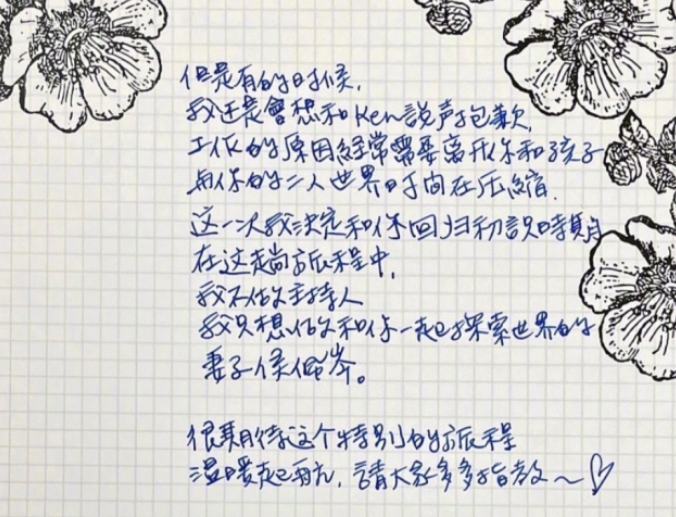 但是有的时候,
我还是會想和Ken説声抱歉,
工作的原因経常需要离开你和孩子
与你的二人世界时间在压縮.
这一次我決定和你回归初識時期
在这趟旅程中,
我不做主持人
我只想做和你一起探索世界的
妻子侯佩岑。
很期待这个特别的旅程
温暖起航,請大家多多指教~♡